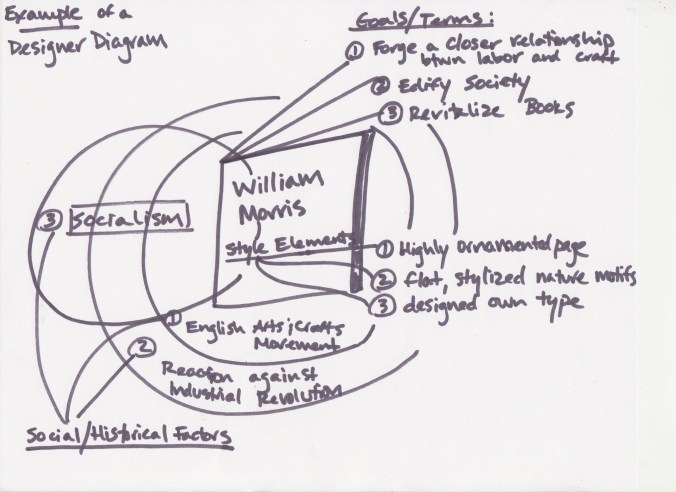 Example of a
Designer Diagram
Goals/Terms:
① Forge a closer relationship
btwn labor and craft
② Edify Society
③ Revitalize Books
William
Morris
Style Elements
① Highly ornamental page
② flat, stylized nature motifs
③ designed own type
③ Socialism
① English Arts & Crafts
Movement
② Reaction against
Industrial Revolution
Social/Historical Factors